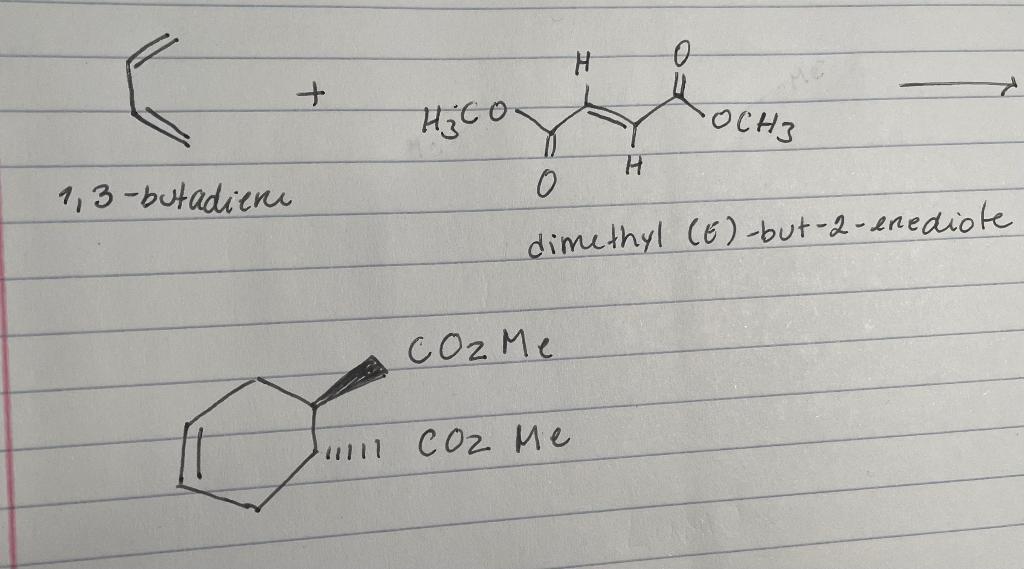 H O
+ H₃CO OCH₃
O H
1,3-butadiene
dimethyl (E)-but-2-enediote
CO₂Me
CO₂Me